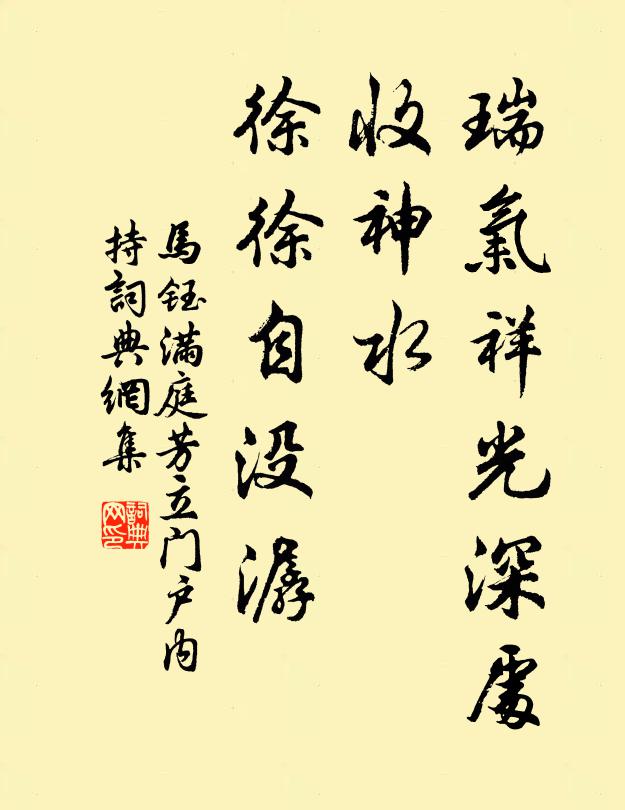 瑞氣祥光深處
收神水
徐徐自没潺
馬鈺滿庭芳立门户内
持詞典網集
詞典网印